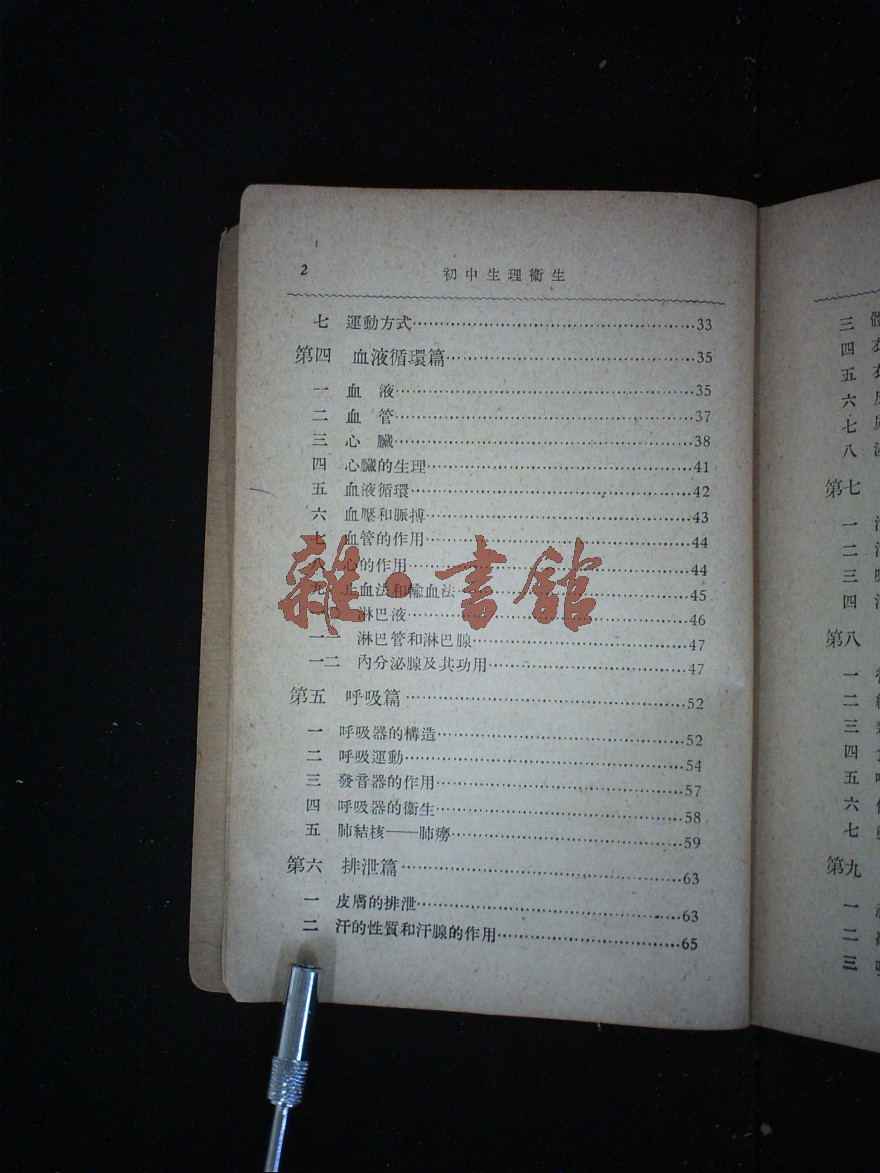 2 初中生理衞生
七 運動方式……33
第四 血液循環篇……35
一 血液……35
二 血管……37
三 心臟……38
四 心臟的生理……41
五 血液循環……42
六 血壓和脈搏……43
七 血管的作用……44
八 心的作用……44
九 止血法和輸血法……45
淋巴液……46
一一 淋巴管和淋巴腺……47
一二 內分泌腺及其功用……47
第五 呼吸篇……52
一 呼吸器的構造……52
二 呼吸運動……54
三 發音器的作用……57
四 呼吸器的衞生……58
五 肺結核——肺癆……59
第六 排泄篇……63
一 皮膚的排泄……63
二 汗的性質和汗腺的作用……65
雜·書館
三
四
五
六
七
八
第七
一
二
三
四
第八
一
二
三
四
五
六
七
第九
一
二
三